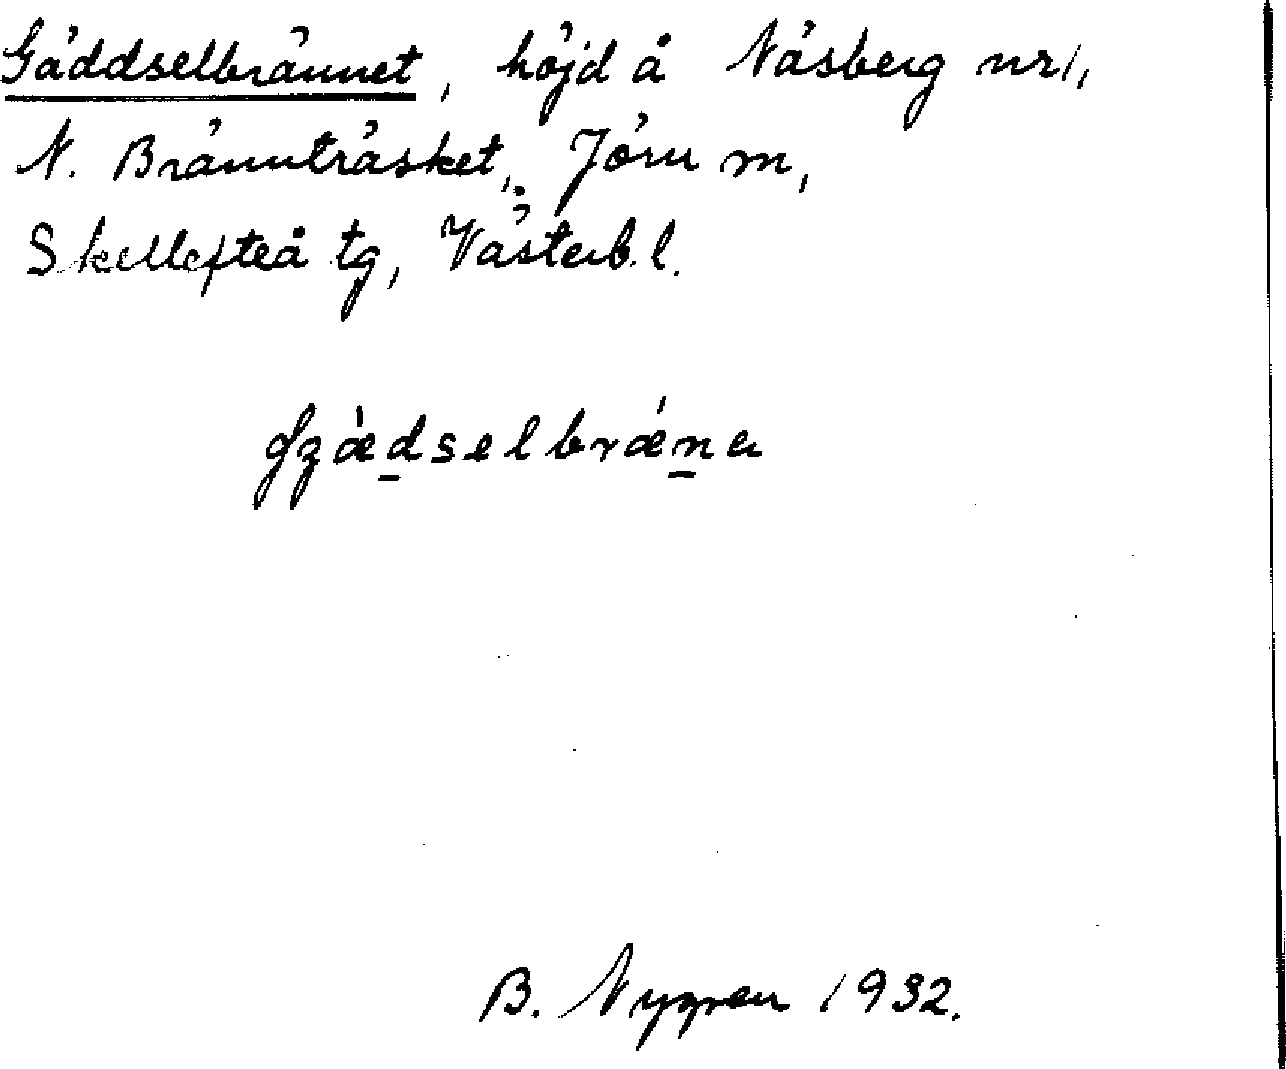 Gäddselbrännet, höjd å Näsberg nr 1,
N. Brännträsket, Jörn m,
Skellefteå tg, Västerb. l.
B. Nygren 1932.